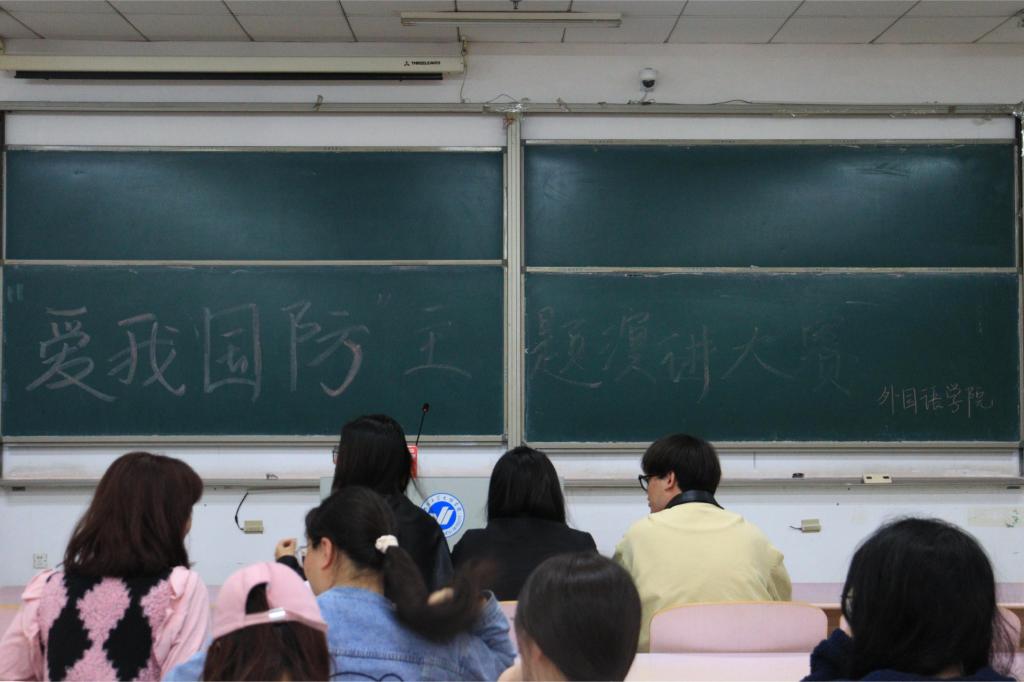 THREELEAVES
爱我国防”主题演讲大赛
外国语学院